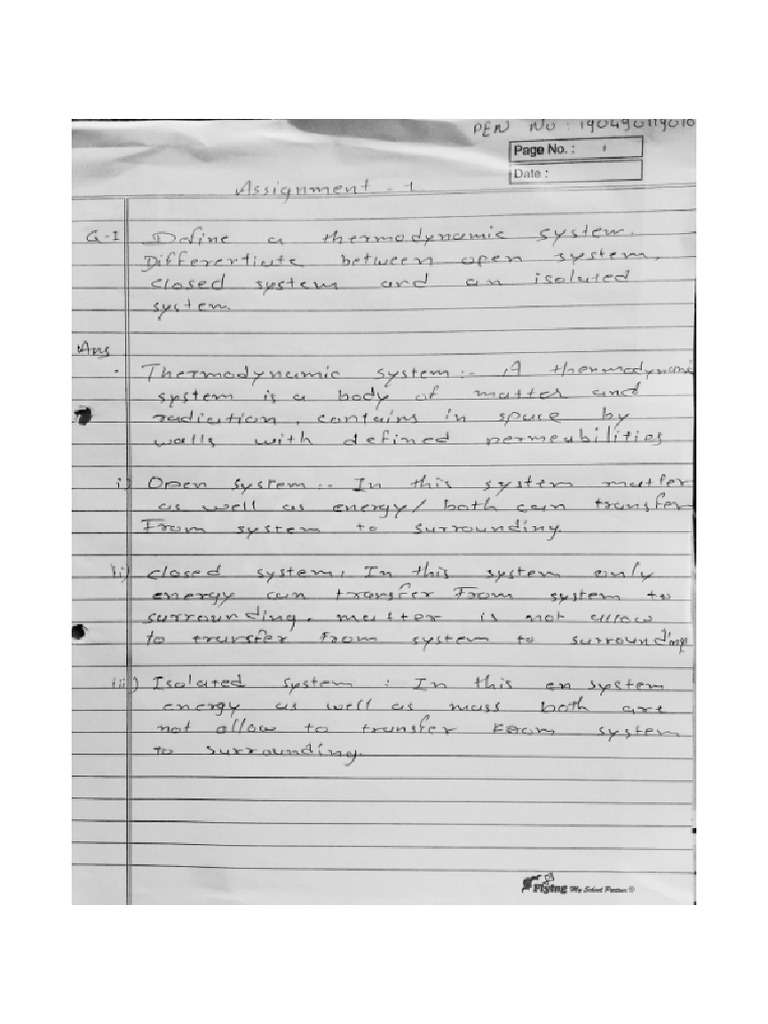 PEN No : 190490119010
Page No. : 1
Date :
Assignment - 1
Q-1 Define a thermodynamic system.
Differentiate between open system,
closed system and an isolated
system.
Ans
. Thermodynamic system :- A thermodynamic
system is a body of matter and
radiation, contains in space by
walls with defined permeabilities
i) Open system :- In this system matter
as well as energy/ both can transfer
From system to surrounding.
ii) closed system : In this system only
energy can transfer From system to
surrounding. matter is not allow
to transfer from system to surrounding
iii) Isolated system : In this en system
energy as well as mass both are
not allow to transfer From system
to surrounding.
Flying My School Partner ©